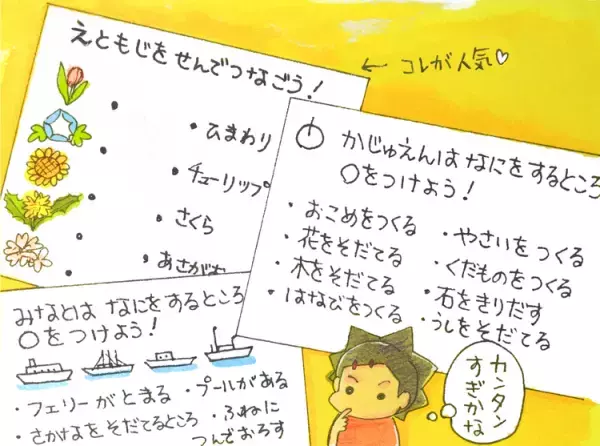 えともじを せんでつなごう！
← コレが人気♡
・ひまわり
・チューリップ
・さくら
・あさがお
かじゅえんは なにを するところ
○をつけよう！
・おこめをつくる
・花をそだてる
・木をそだてる
・はなびをつくる
・やさいを つくる
・くだものをつくる
・石をきりだす
・うしをそだてる
みなとは なにを するところ
○をつけよう！
・フェリーがとまる
・さかなをそだてるところ
・プールがある
・ふねに
つんでおろす
カンタン
すぎかな